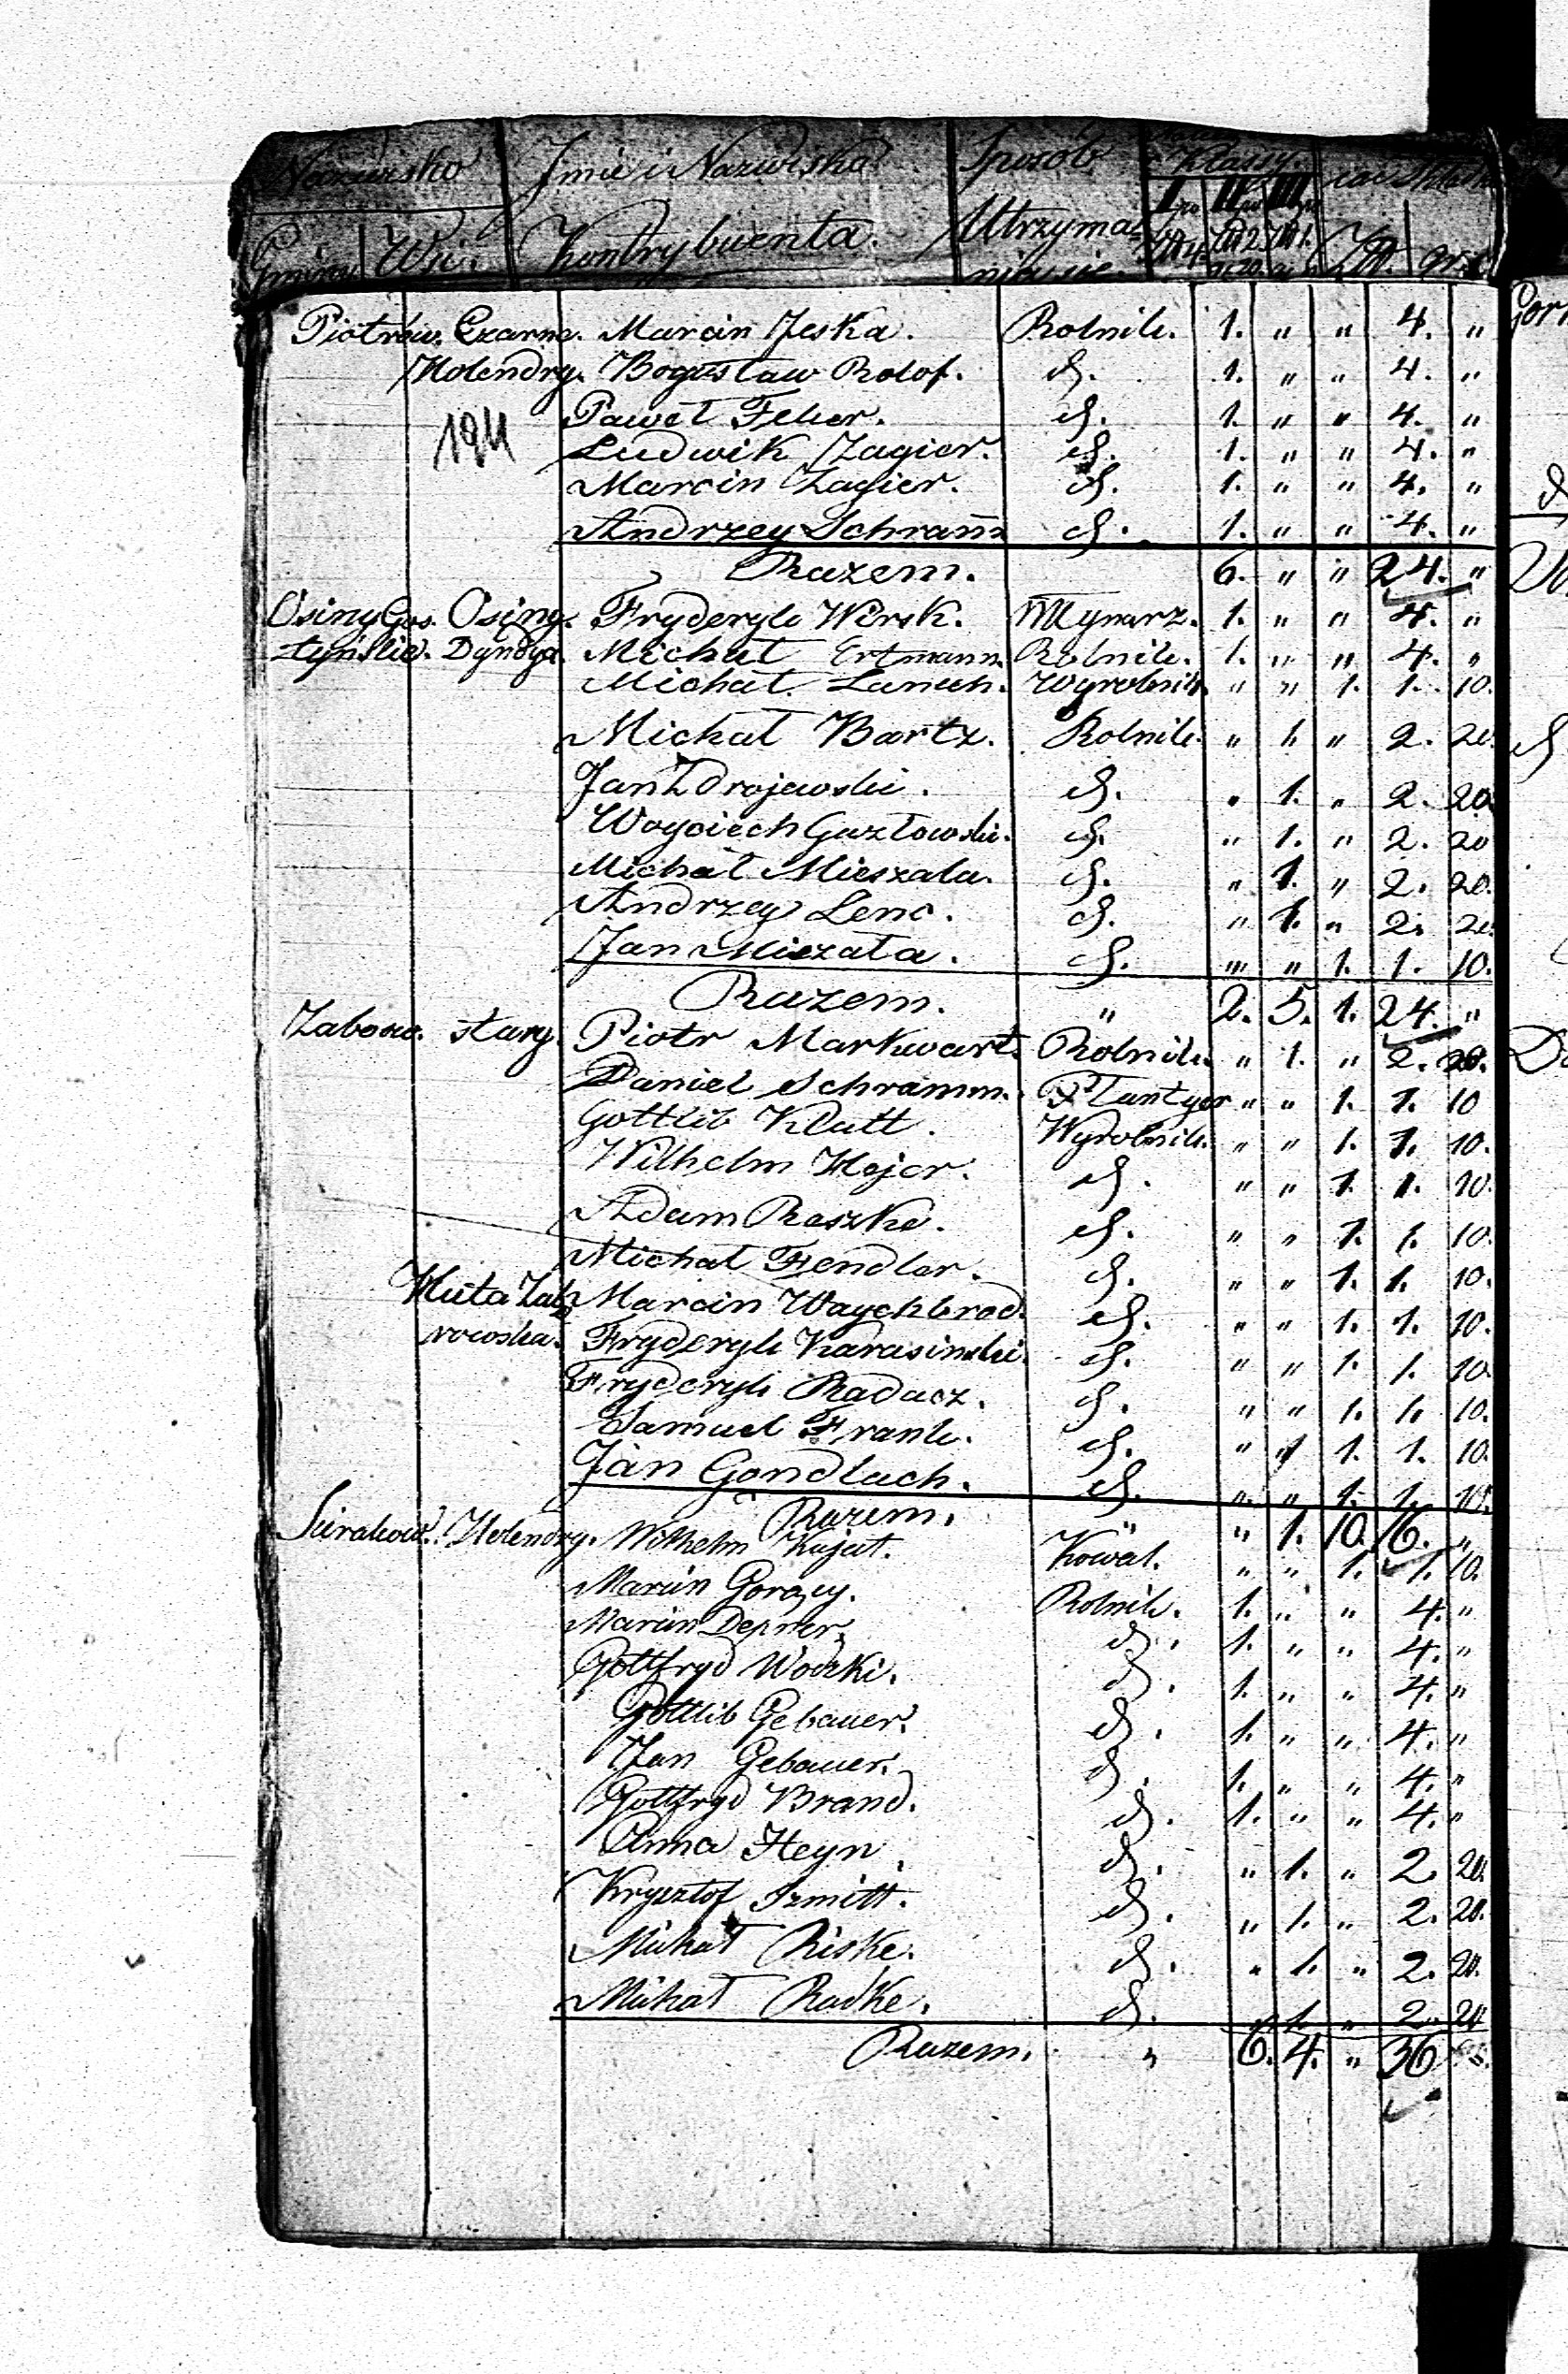 Nazwisko Jmie i Nazwisko Sposób Klassy.
Gminy Wsi. Kontrybuenta. Utrzyma- Złp. gr.
nia się.
Piotrów. Czarne. Marcin Jeska. Rolnik. 1. " " 4. "
Holendry. Bogusław Rolof. d. 1. " " 4. "
194 Paweł Feher. d. 1. " " 4. "
Ludwik Zagier. d. 1. " " 4. "
Marcin Zagier. d. 1. " " 4. "
Andrzey Schram̄ d. 1. " " 4. "
Razem. 6. " " 24. "
Osiny Gos. Osiny. Fryderyk Wirsk. Młynarz. 1. " " 4. "
tyńskie. Dyndya. Michał Ertmann. Rolnik. 1. " " 4. "
Michał Lanch. Wyrobnik. " " 1. 1. 10.
Michał Bartz. Rolnik. " 1. " 2. 20.
Jan Zdrojewski. d. " 1. " 2. 20.
Woyciech Guzłowski. d. " 1. " 2. 20
Michał Mieszala. d. " 1. " 2. 20.
Andrzey Lenc. d. " 1. " 2. 20.
Jan Miezała. d. " " 1. 1. 10.
Razem. " 2. 5. 1. 24. "
Zaborow. stary. Piotr Markwart. Rolnik. " 1. " 2. 20.
Daniel Schramm. Plantyer " " 1. 1. 10
Gottlib Klatt. Wyrobnik. " " 1. 1. 10.
Wilhelm Hejer. d. " " 1. 1. 10.
Adam Raszke. d. " " 1. 1. 10.
Michał Fendler. d. " " 1. 1. 10.
Huta Zabo Marcin Waychbrod. d. " " 1. 1. 10.
rowska. Fryderyk Karasinski. d. " " 1. 1. 10.
Fryderyk Radacz. d. " " 1. 1. 10.
Samuel Frank. d. " " 1. 1. 10.
Jan Gondlach. d. " " 1. 1. 10.
Razem. " " 1. 10. 16. "
Sirakow. Holendry. Wilhelm Kujat. Kowal. " " 1. 1. 10.
Marcin Gorzey. Rolnik. 1. " " 4. "
Marcin Depner. d. 1. " " 4. "
Gottfryd Wodzki. d. 1. " " 4. "
Gottlib Gebauer. d. 1. " " 4. "
Jan Gebauer. d. 1. " " 4. "
Gottfryd Brand. d. 1. " " 4. "
Anna Heyn. d. " 1. " 2. 20.
Krysztof Szmitt. d. " 1. " 2. 20.
Michał Riske. d. " 1. " 2. 20.
Michał Radke. d. " 1. " 2. 20
Razem. " 6. 4. " 36